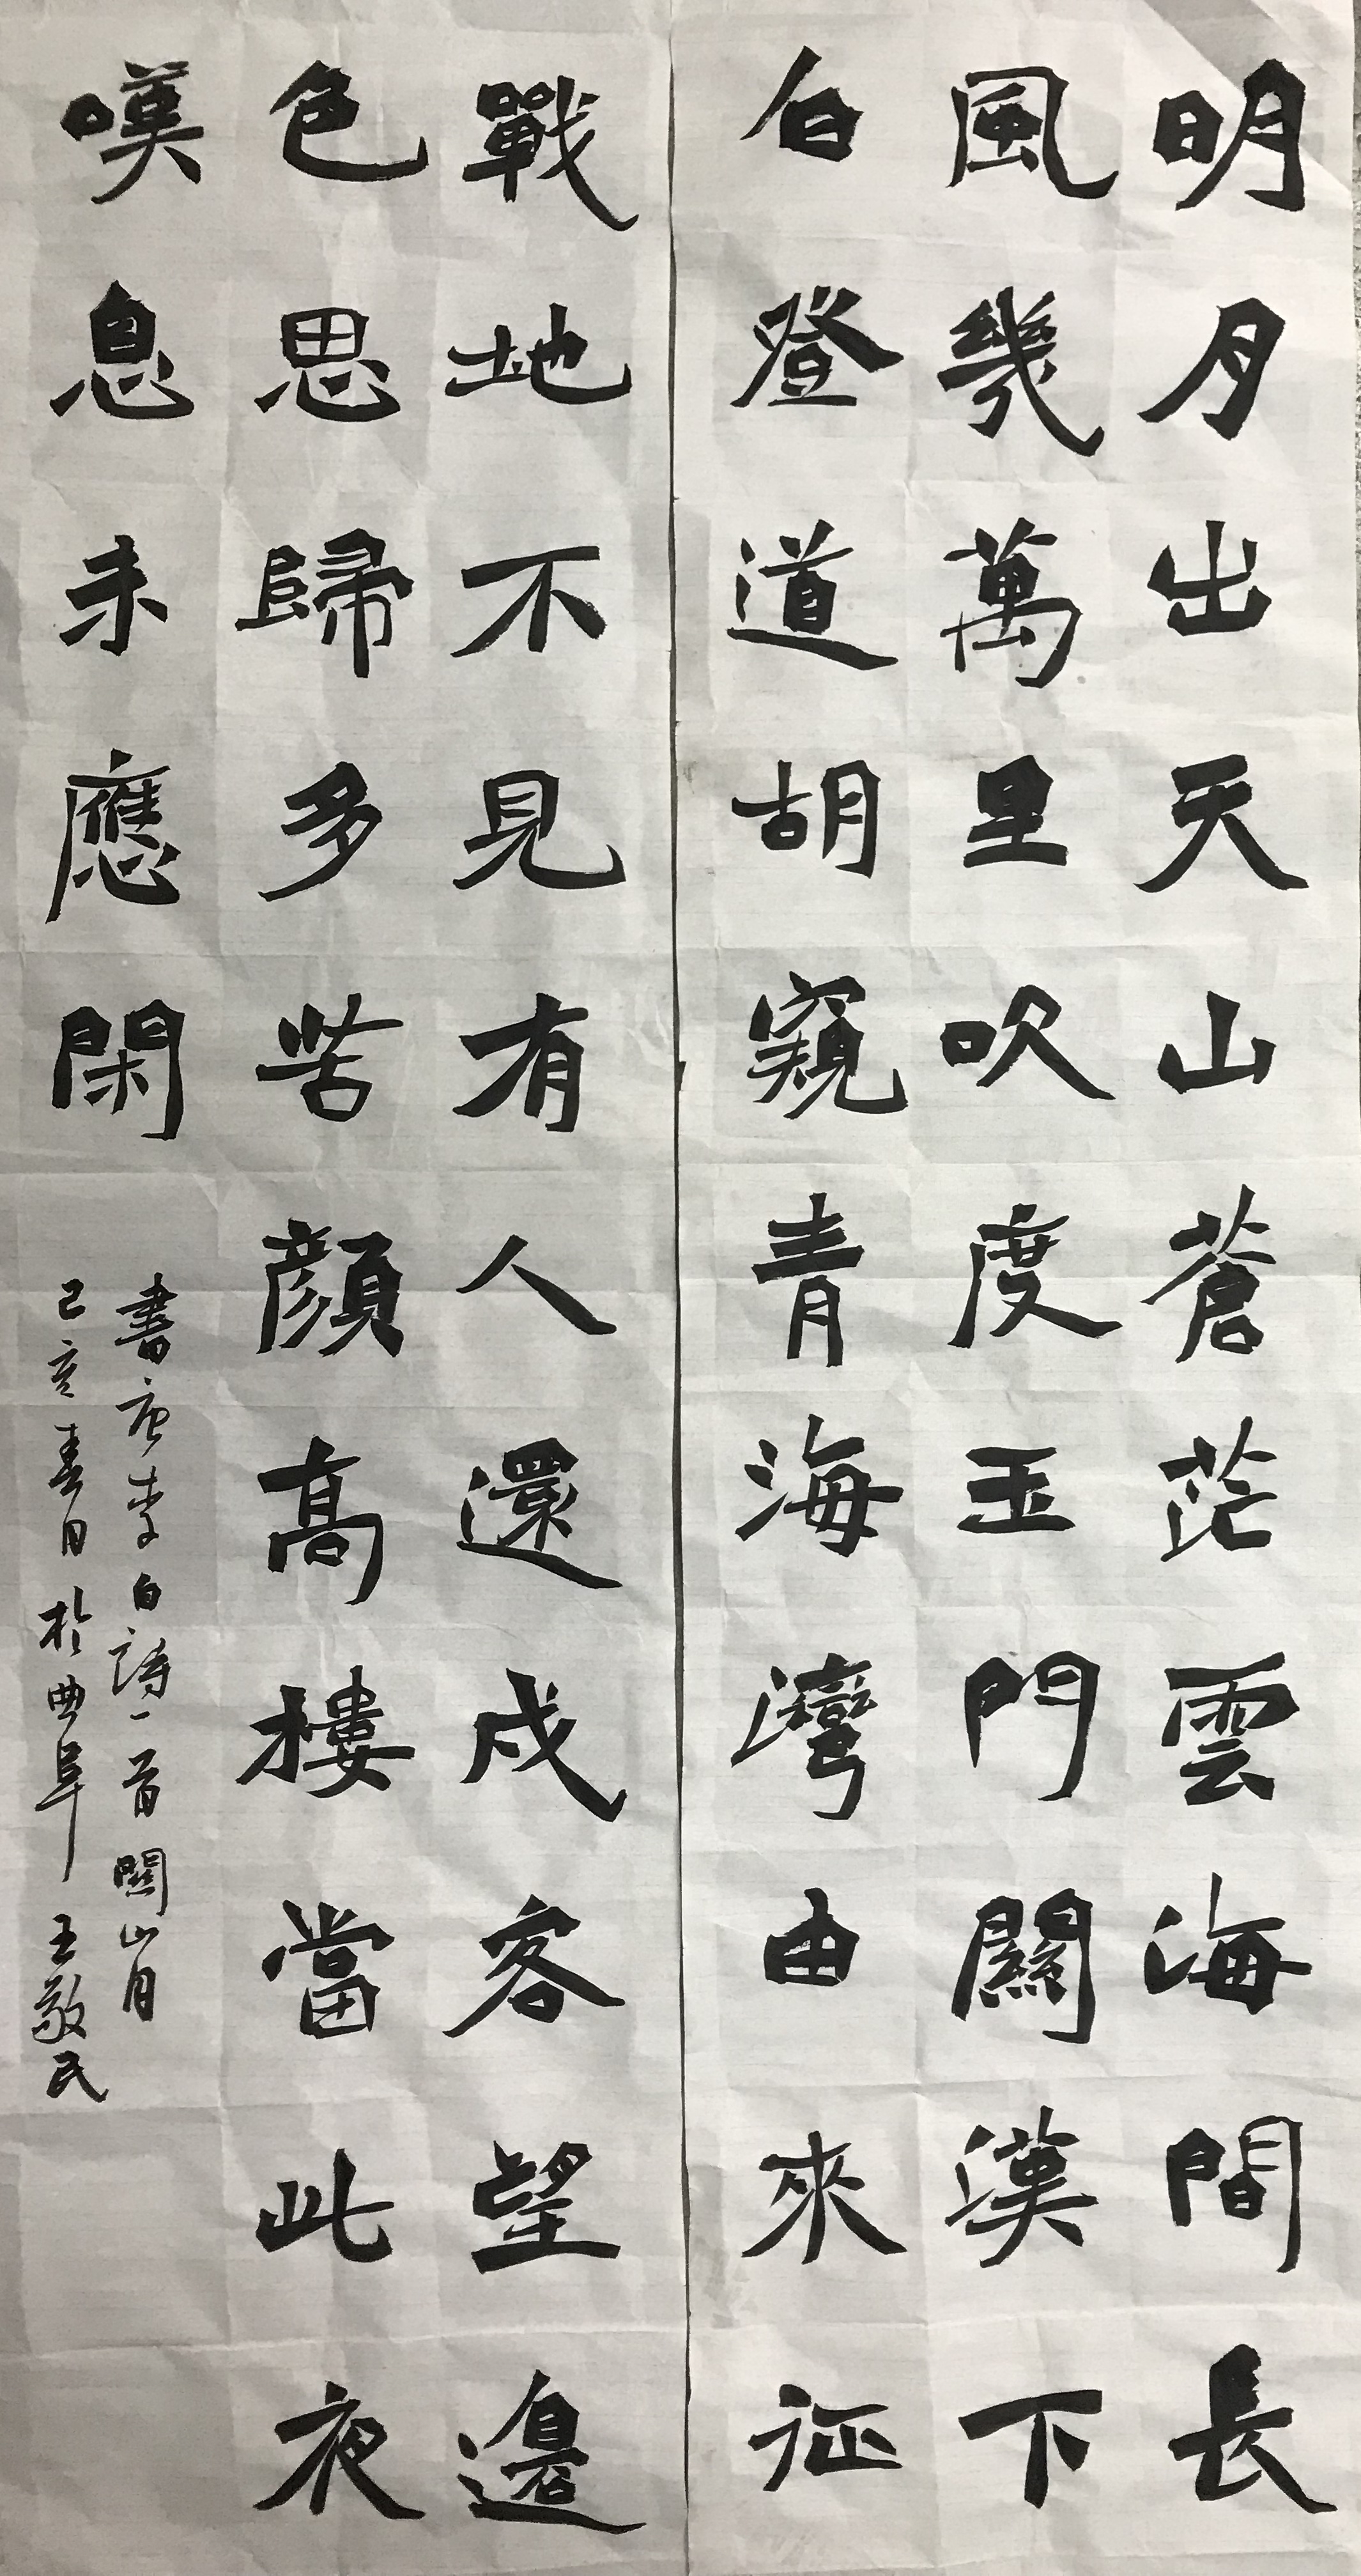 明月出天山蒼茫雲海間長
風幾萬里吹度玉門關漢下
白登道胡窺青海灣由來征
戰地不見有人還戍客望邊
色思歸多苦顏高樓當此夜
嘆息未應閑
書唐李白詩一首關山月
己亥春日於曲阜王敬民